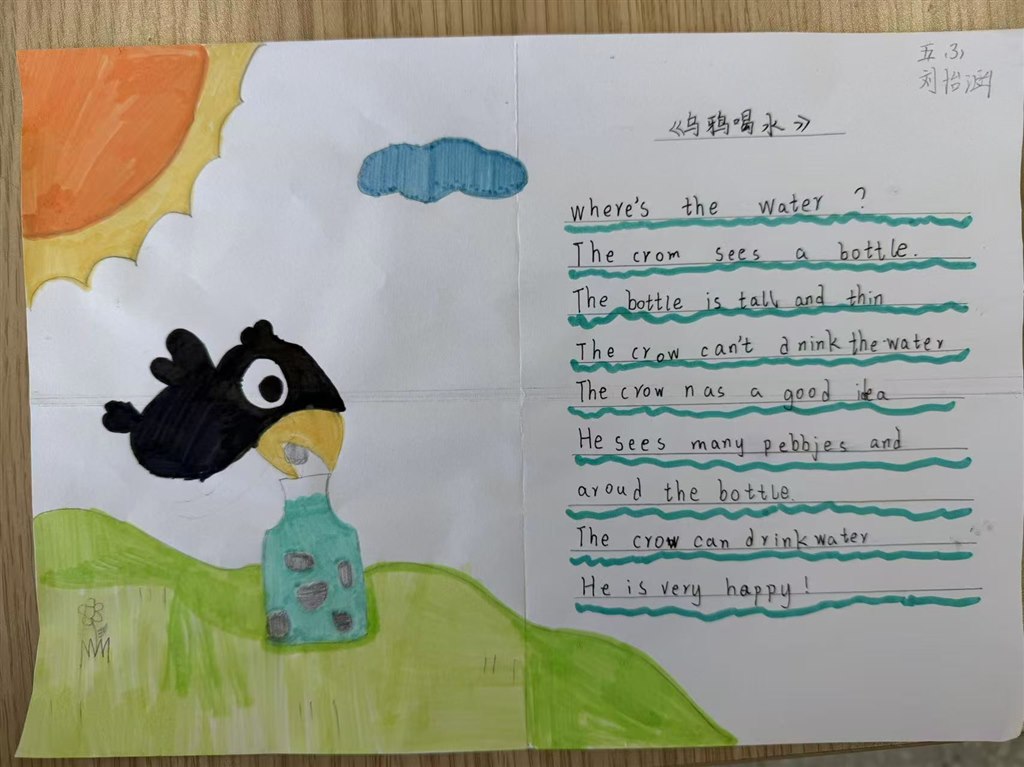 五.3,
刘怡渊
《乌鸦喝水》
where's the water ?
The crom sees a bottle.
The bottle is tall and thin
The crow can't dnink the water
The crow nas a good idea
He sees many pebbjes and
aroud the bottle.
The crow can drink water
He is very happy!